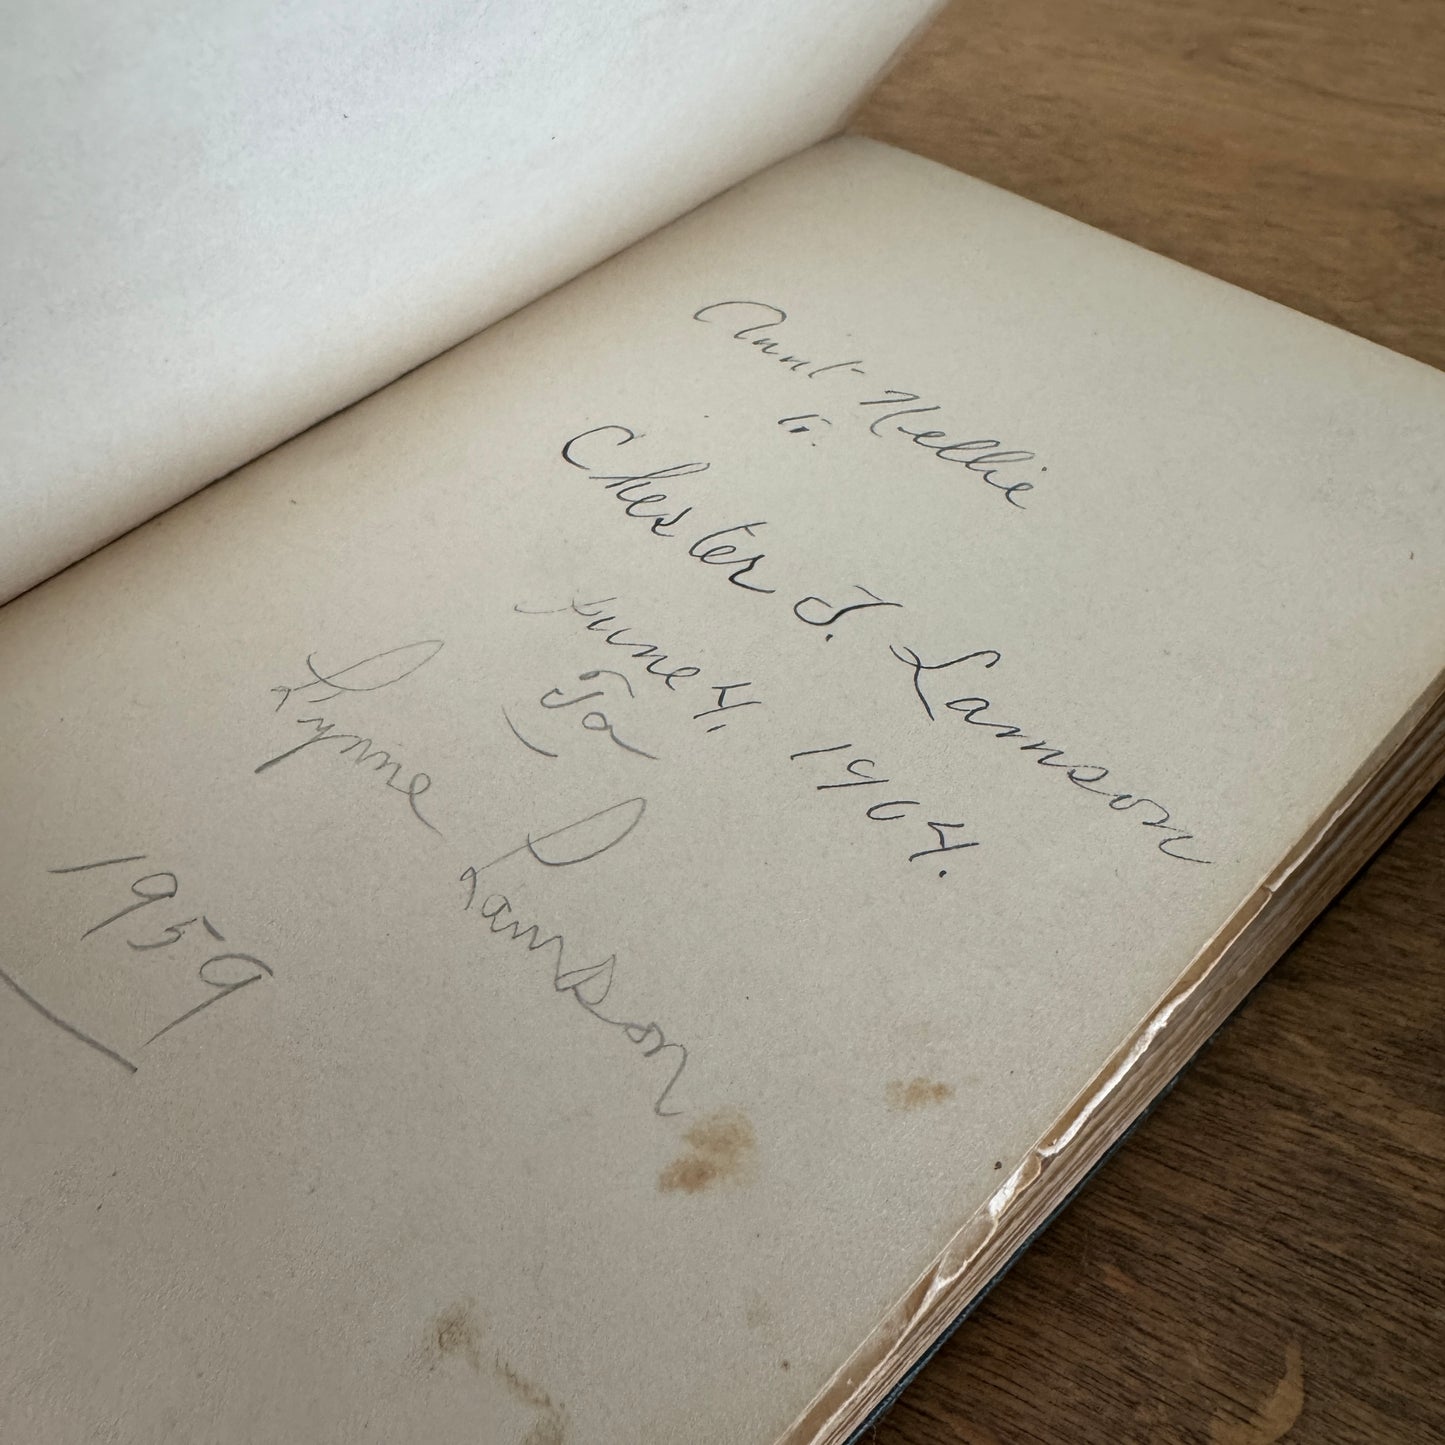 Aunt Nellie
to
Chester J. Lamson
June 4, 1904.
To
Lynne Lamson
1959